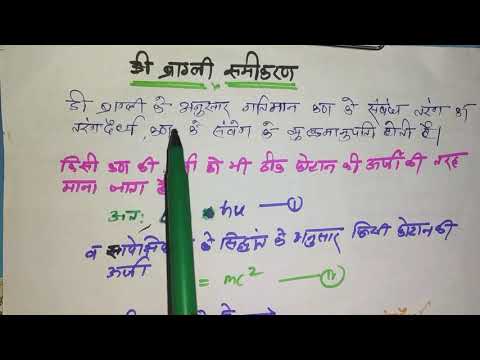 डी ब्राग्ली समीकरण
डी ब्राग्ली के अनुसार गतिमान कण के संबंध तरंग की
तरंगदैर्ध्य, कण के संवेग के व्युत्क्रमानुपाती होती है।
किसी कण की ऊर्जा को भी ठीक फोटान की ऊर्जा की तरह
माना जाता है
अतः hν ——(I)
व सापेक्षि के सिद्धांत के अनुसार किसी फोटान की
ऊर्जा
= mc² ——(II)